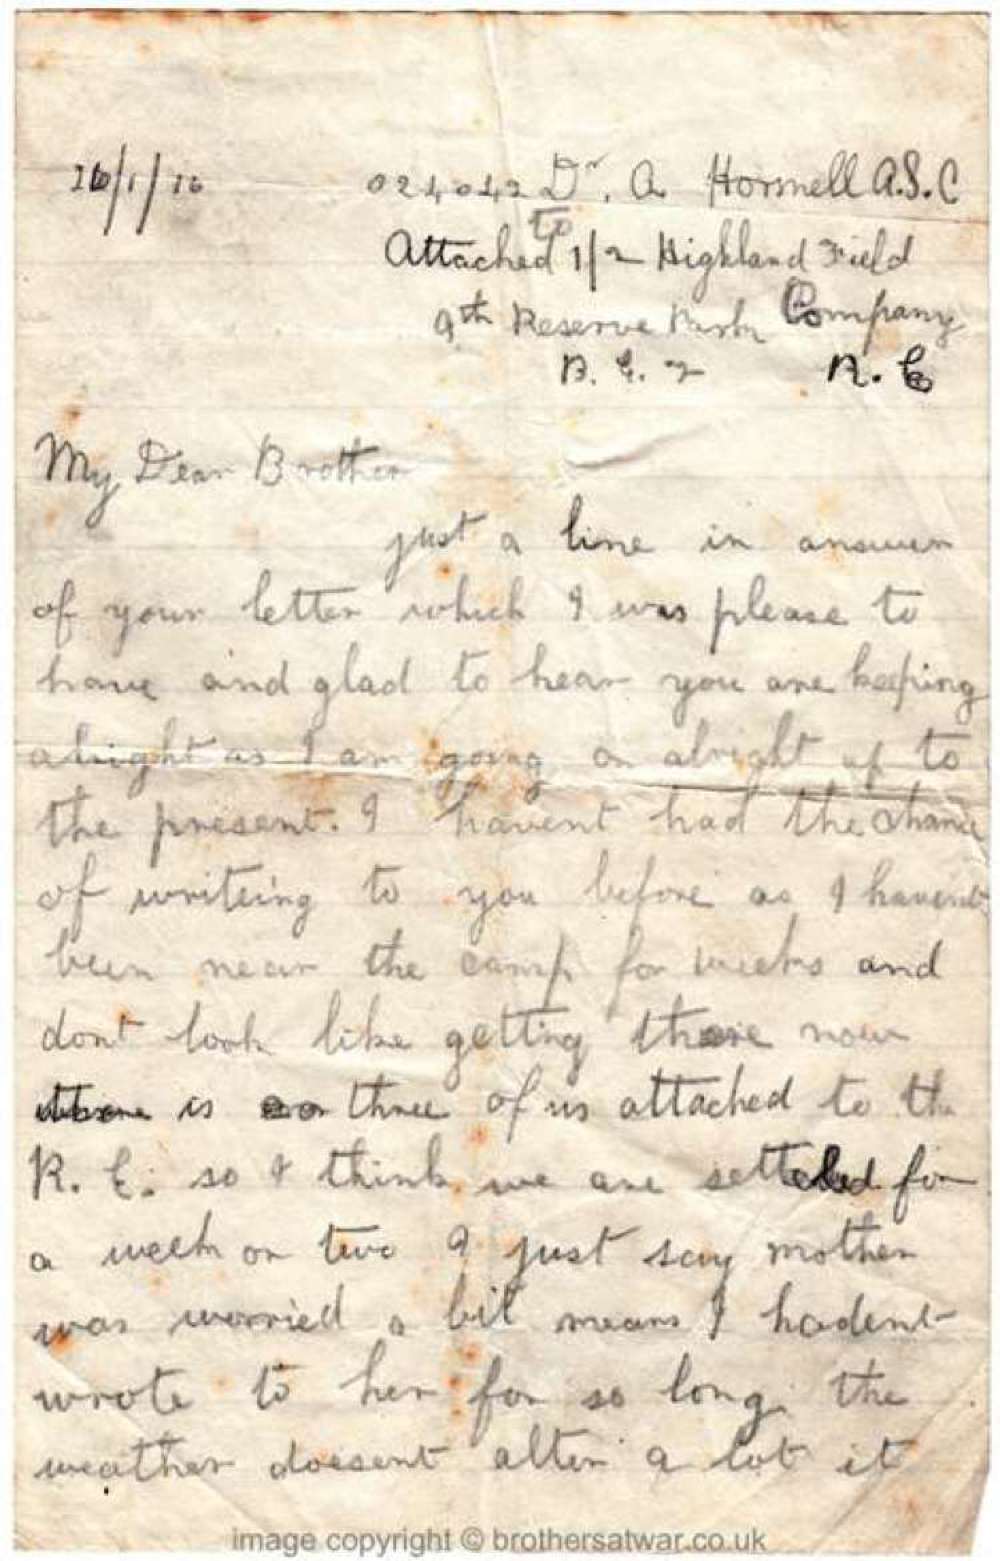 16/1/16 024042 Dr. A Hormell A.S.C
to
Attached 1/2 Highland Field
9th Reserve Park Company
B. E. F R. E
My Dear Brother
just a line in answer
of your letter which I was please to
have and glad to hear you are keeping
alright as I am going on alright up to
the present. I havent had the chance
of writeing to you before as I havent
been near the camp for weeks and
dont look like getting there now
is three of us attached to the
R. E. so I think we are setteled for
a week or two I just say mother
was worried a bit means I hadent
wrote to her for so long. the
weather doesent alter a lot it
image copyright © brothersatwar.co.uk